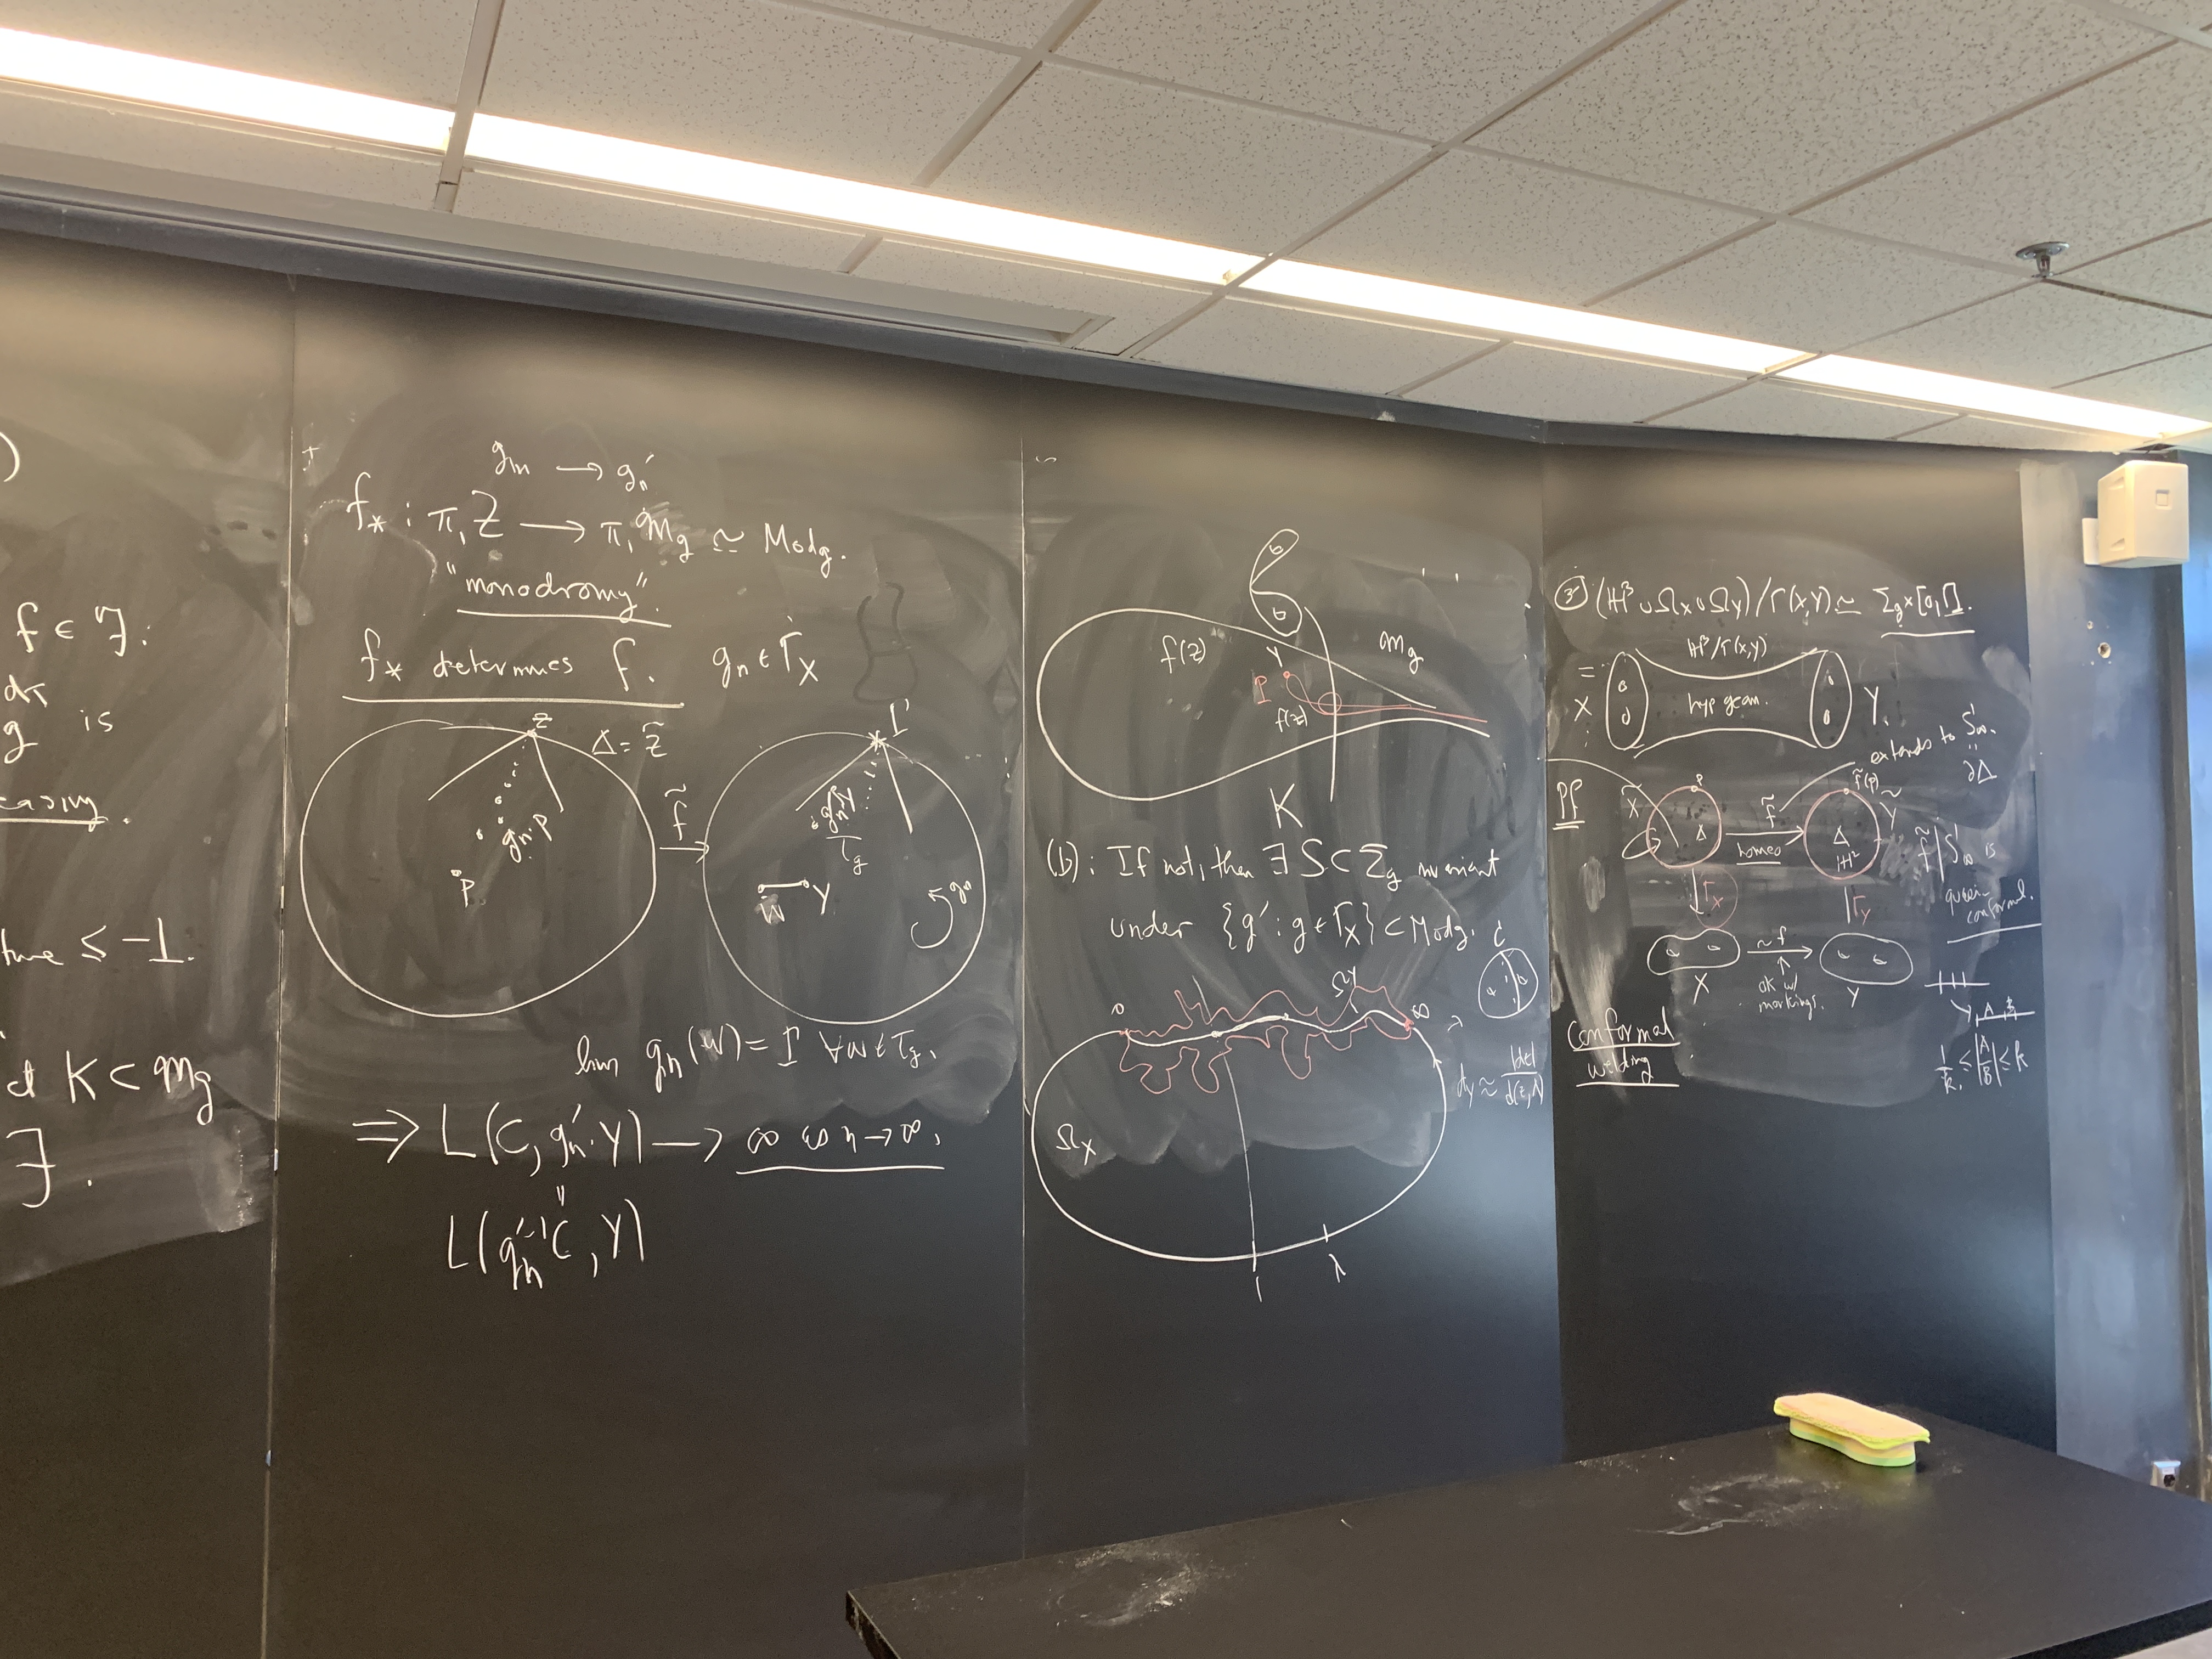 )
f ∈ ℱ.
g is
≤ -1.
K ⊂ M_g
ℱ.
g_n → g_n'
f_* : π_1 Z → π_1 M_g ≃ Mod_g.
"monodromy".
f_* determines f. g_n ∈ Γ_X
z
Δ = Z̃
g_n·P
P
f̃
Γ
g_n'·Y
T_g
W Y
lim g_n'(W) = Γ ∀W ∈ T_g.
⇒ L(C, g_n'·Y) → ∞ as n → ∞.
"
L(g_n'^{-1} C, Y)
f(z)
Y
P
f(z)
M_g
K
(b): If not, then ∃ S ⊂ Σ_g invariant
under {g' : g ∈ Γ_X} ⊂ Mod_g.
0
Ω_Y
∞
Ω_X
1
λ
③ (H³ ∪ Ω_X ∪ Ω_Y) / Γ(X,Y) ≃ Σ_g × [0,1].
=
H³/Γ(X,Y)
X
hyp geom.
Y.
extends to S'_∞.
"
∂Δ
Pf
X̃
P
Δ
f̃
homeo
f̃(p)
Ỹ
Δ
H²
f̃|S'_∞ is
quasi-
conformal.
Γ_X
Γ_Y
X
~f
ok w/
markings.
Y
Conformal
welding
1/k ≤ |A/B| ≤ k